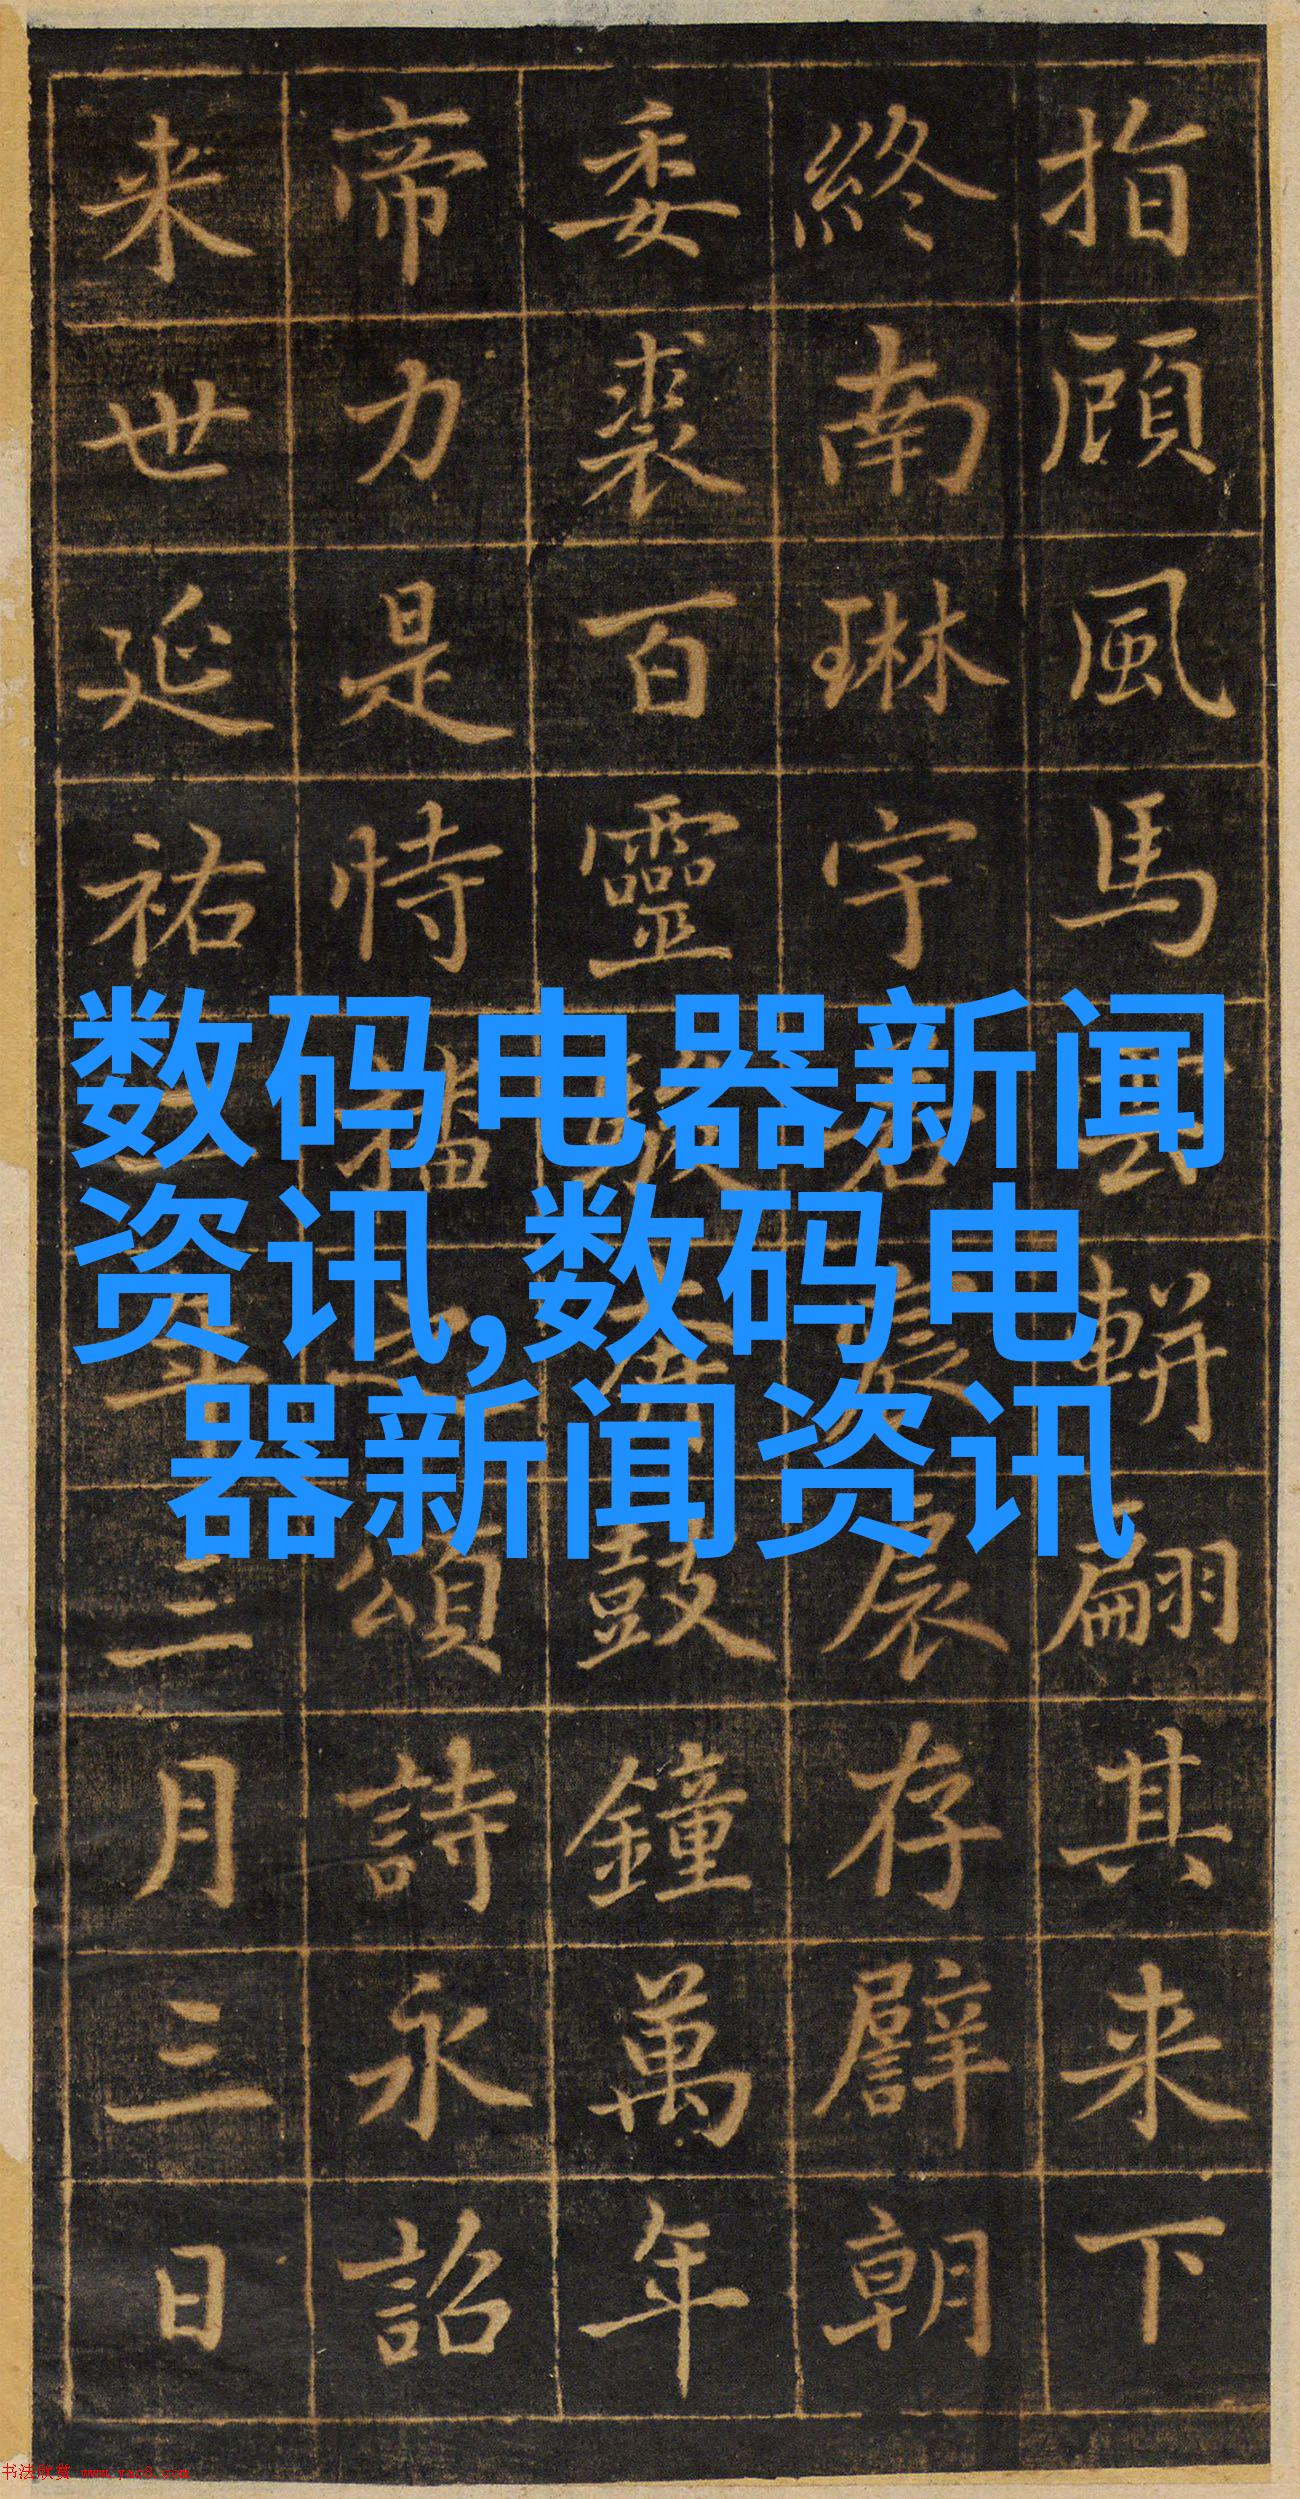 指顧風馬雲軿翩其来下
終南琳宇若扆存譬朝
委裘百靈鼓鐘萬年
帝力是恃播之頌詩永詔
来世延祐年三月三日
数码电器新闻
资讯,数码电
器新闻资讯
书法欣赏 www.yac8.com